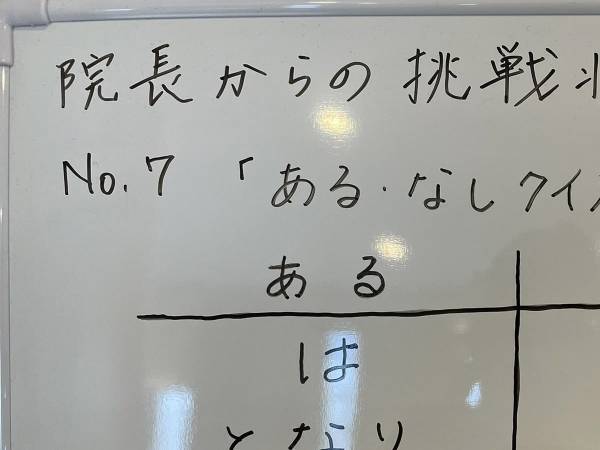 院長からの挑戦
No.7 「ある・なしクイ
ある
は
となり